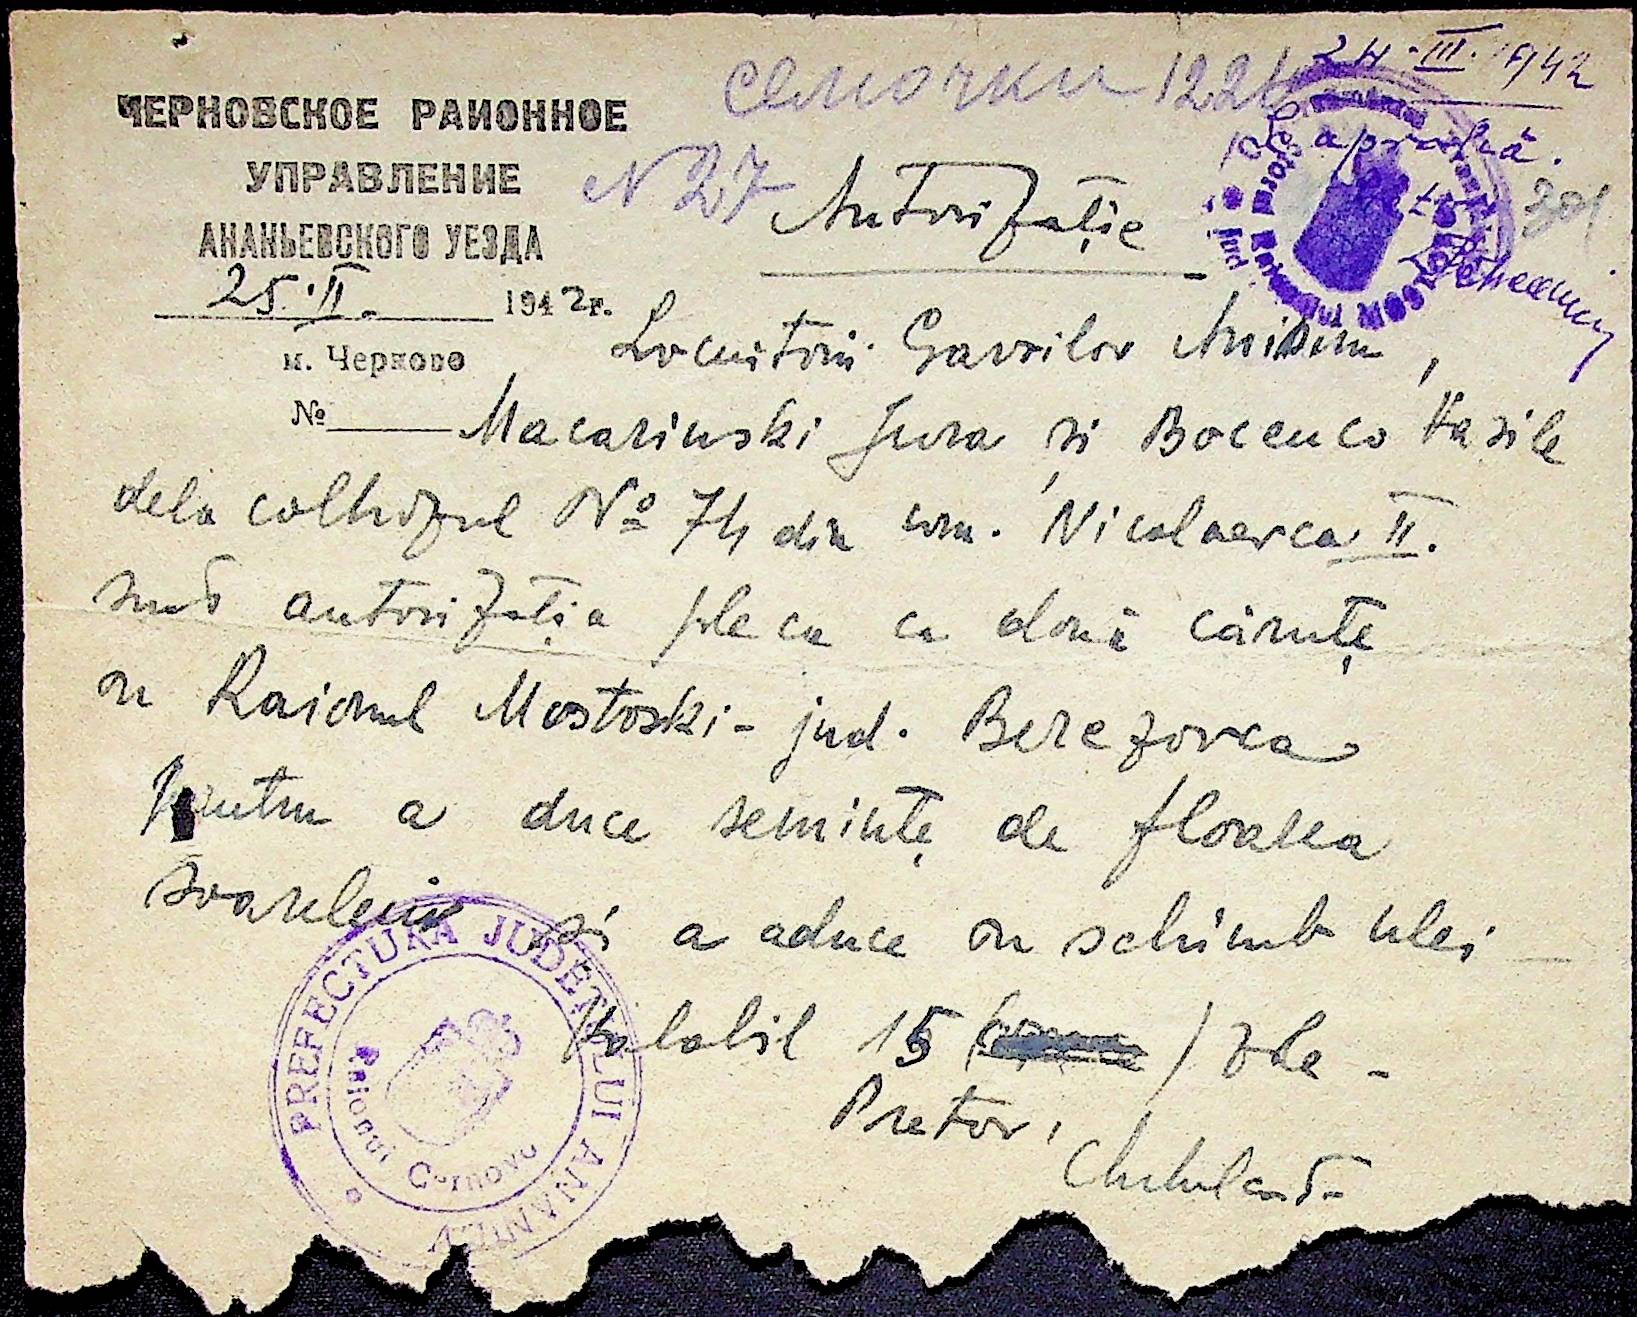 ЧЕРНОВСКОЕ РАИОННОЕ
УПРАВЛЕНИЕ
АНАНЬЕВСКОГО УЕЗДА
25.II. 1942г.
м. Черново
№
семочки 122
N 27
24.III.1942
Se aprobă.
Autorizație
Locuitorii Gavrilov Anisim,
Macarinski Jura și Bocenco Vasile
dela colhozul No 74 din com. Nicolaevca II.
sunt autorizați a pleca cu două căruțe
în Raionul Mostoski - jud. Berezovca
pentru a duce semințe de floarea
soarelui și a aduce în schimb ulei
Valabil 15 zile -
Pretor,
PREFECTURA JUDEȚULUI ANANIEV
Raionul Cernovo